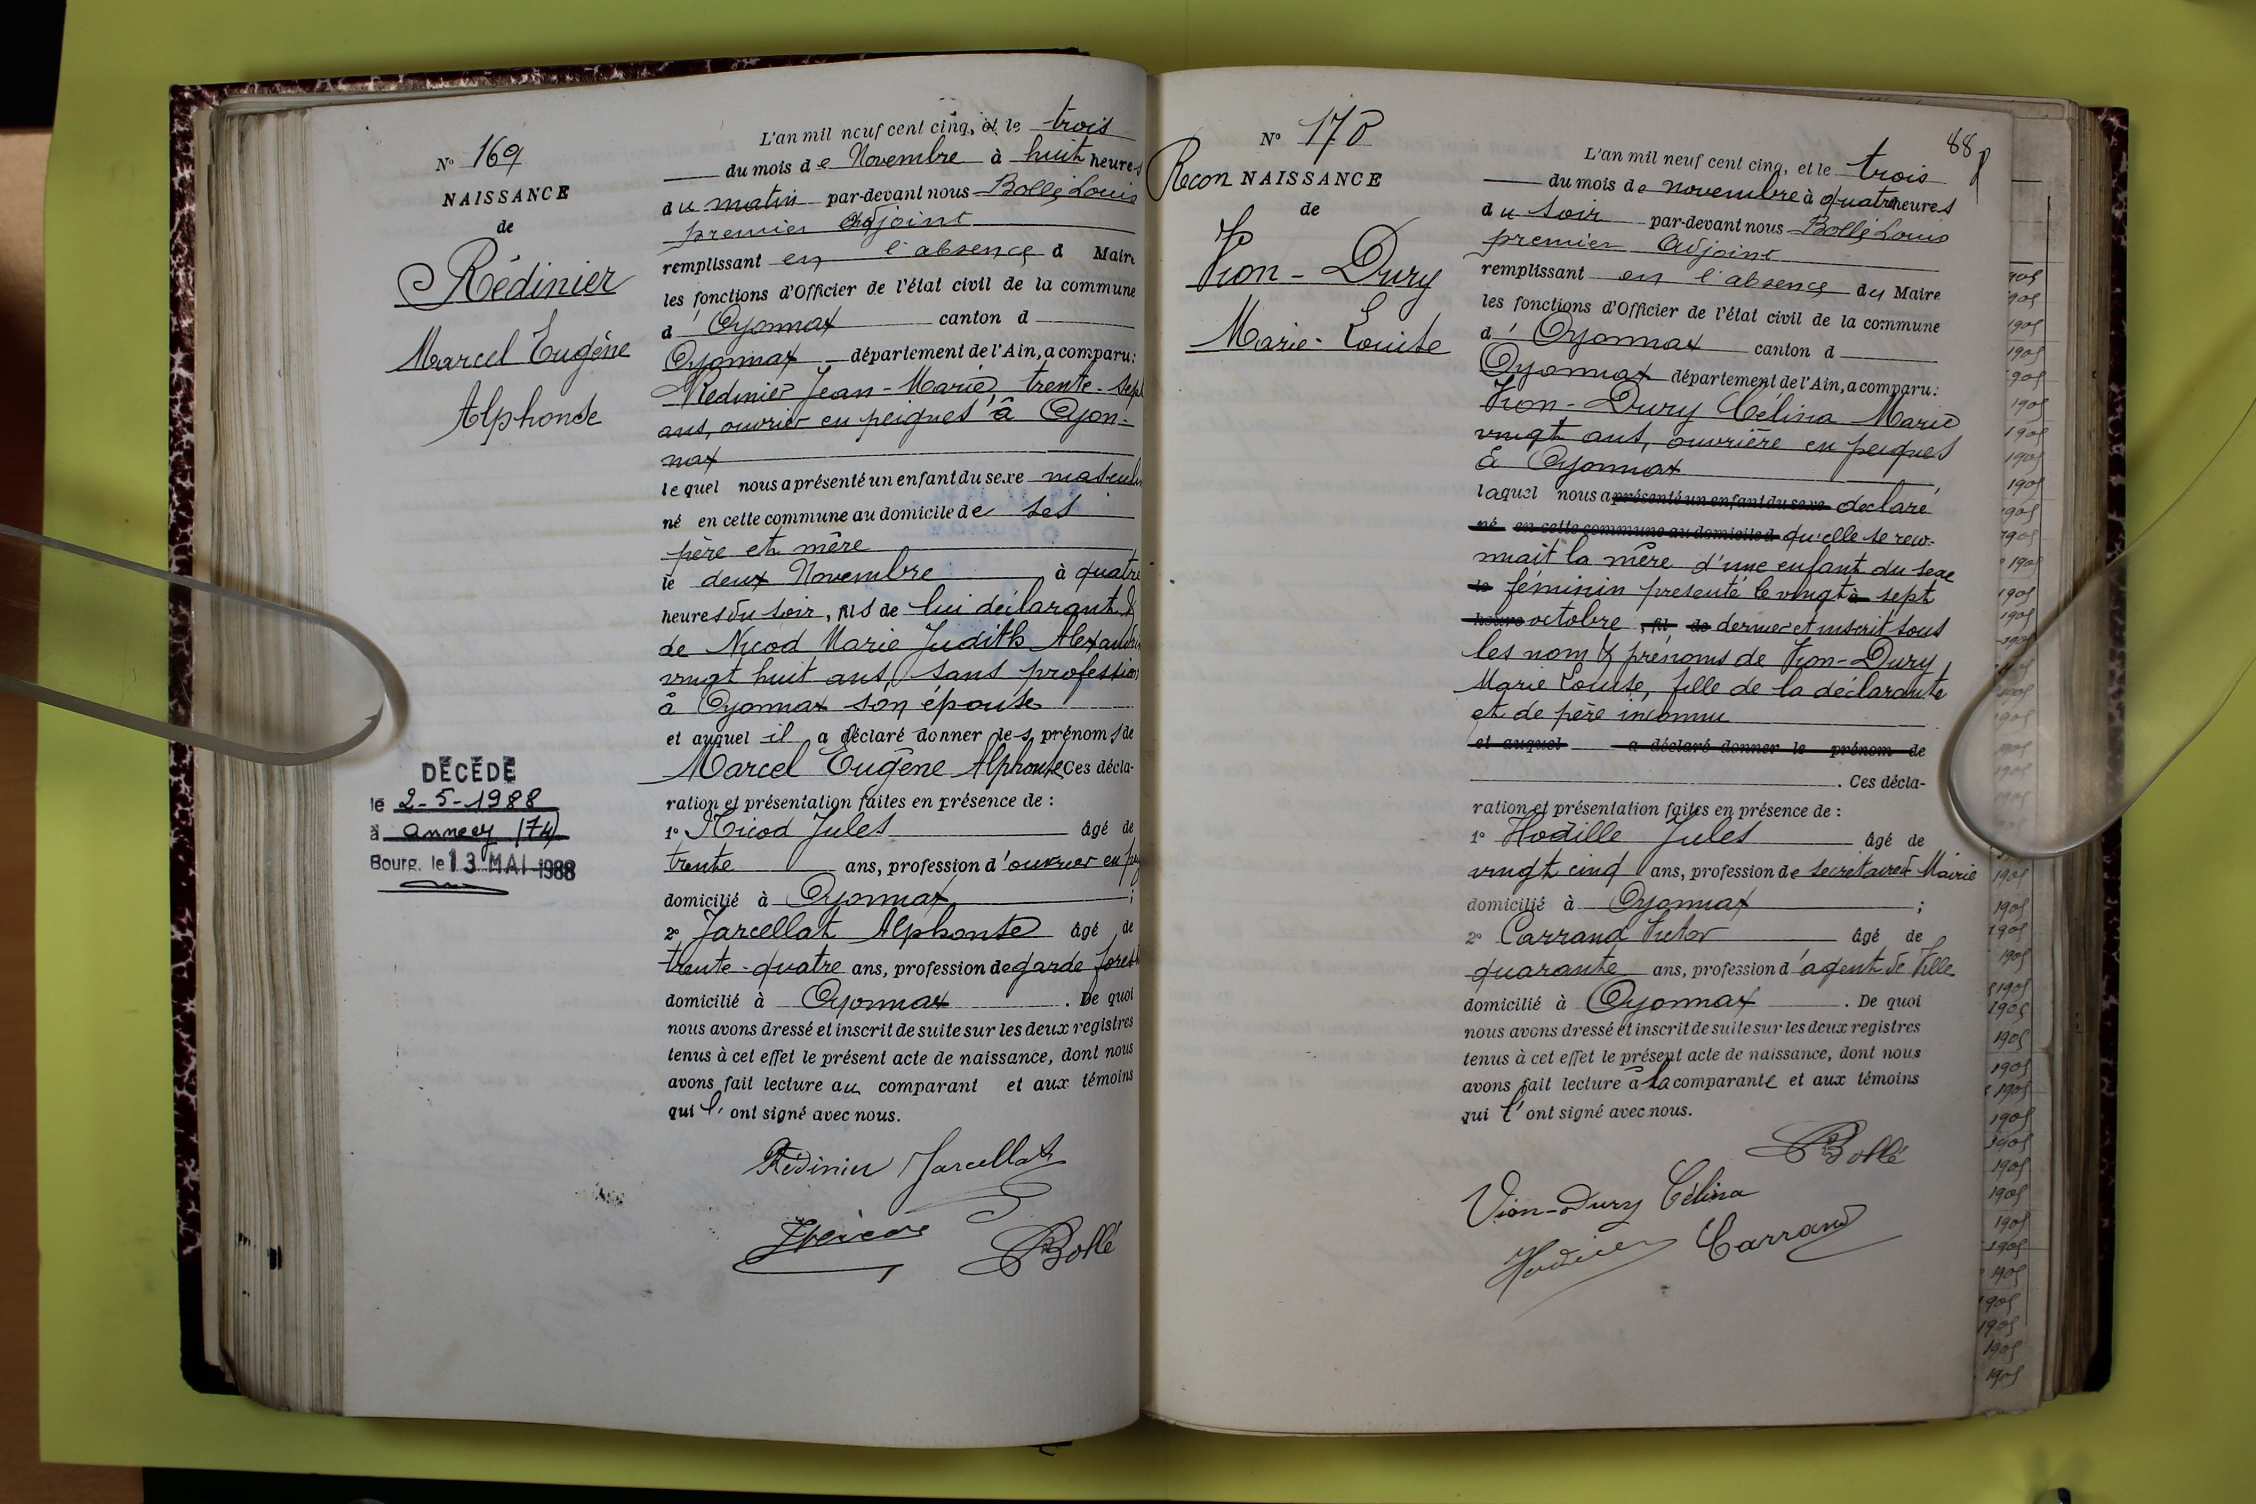 N° 169
NAISSANCE
de
Rédinier
Marcel Eugène
Alphonse
DÉCÉDÉ
le 2-5-1988
à annecy (74)
Bourg, le 13 MAI 1988
L'an mil neuf cent cinq, et le trois
du mois de Novembre à huit heures
du matin par-devant nous Bollé Louis
premier adjoint
remplissant en l'absence d Maire
les fonctions d'Officier de l'état civil de la commune
d'Oyonnax canton d
Oyonnax département de l'Ain, a comparu:
Rédinier Jean-Marie, trente-sept
ans, ouvrier en peignes à Oyon-
nax
lequel nous a présenté un enfant du sexe masculin
né en cette commune au domicile de ses
père et mère
le deux Novembre à quatre
heures du soir, fils de lui déclarant &
de Nicod Marie Judith Alexandrine
vingt huit ans, sans profession
à Oyonnax son épouse
et auquel il a déclaré donner les prénoms de
Marcel Eugène Alphonse Ces décla-
ration et présentation faites en présence de :
1° Nicod Jules âgé de
trente ans, profession d'ouvrier en pei
domicilié à Oyonnax ;
2° Jarcellat Alphonse âgé de
trente-quatre ans, profession de garde forest
domicilié à Oyonnax . De quoi
nous avons dressé et inscrit de suite sur les deux registres
tenus à cet effet le présent acte de naissance, dont nous
avons fait lecture au comparant et aux témoins
qui l'ont signé avec nous.
Rédinier Jarcellat
JNicod Bollé
88
N° 170
Recon NAISSANCE
de
Vion-Dury
Marie-Louise
L'an mil neuf cent cinq, et le trois
du mois de novembre à quatre heures
du soir par-devant nous Bollé Louis
premier adjoint
remplissant en l'absence du Maire
les fonctions d'Officier de l'état civil de la commune
d'Oyonnax canton d
Oyonnax département de l'Ain, a comparu:
Vion-Dury Célina Marie
vingt ans, ouvrière en peignes
à Oyonnax
laquel nous a présenté un enfant du sexe déclaré
né en cette commune au domicile d qu'elle se recon-
nait la mère d'une enfant du sexe
le féminin présenté le vingt à sept
heure octobre , fil de dernier et inscrit sous
les nom & prénoms de Vion-Dury,
Marie Louise, fille de la déclarante
et de père inconnu
et auquel a déclaré donner le prénom de
. Ces décla-
ration et présentation faites en présence de :
1° Hodille Jules âgé de
vingt cinq ans, profession de secrétaire d Mairie
domicilié à Oyonnax ;
2° Carrand Victor âgé de
quarante ans, profession d'agent de Ville
domicilié à Oyonnax . De quoi
nous avons dressé et inscrit de suite sur les deux registres
tenus à cet effet le présent acte de naissance, dont nous
avons fait lecture à la comparante et aux témoins
qui l'ont signé avec nous.
Bollé
Vion-Dury Célina
Carrand